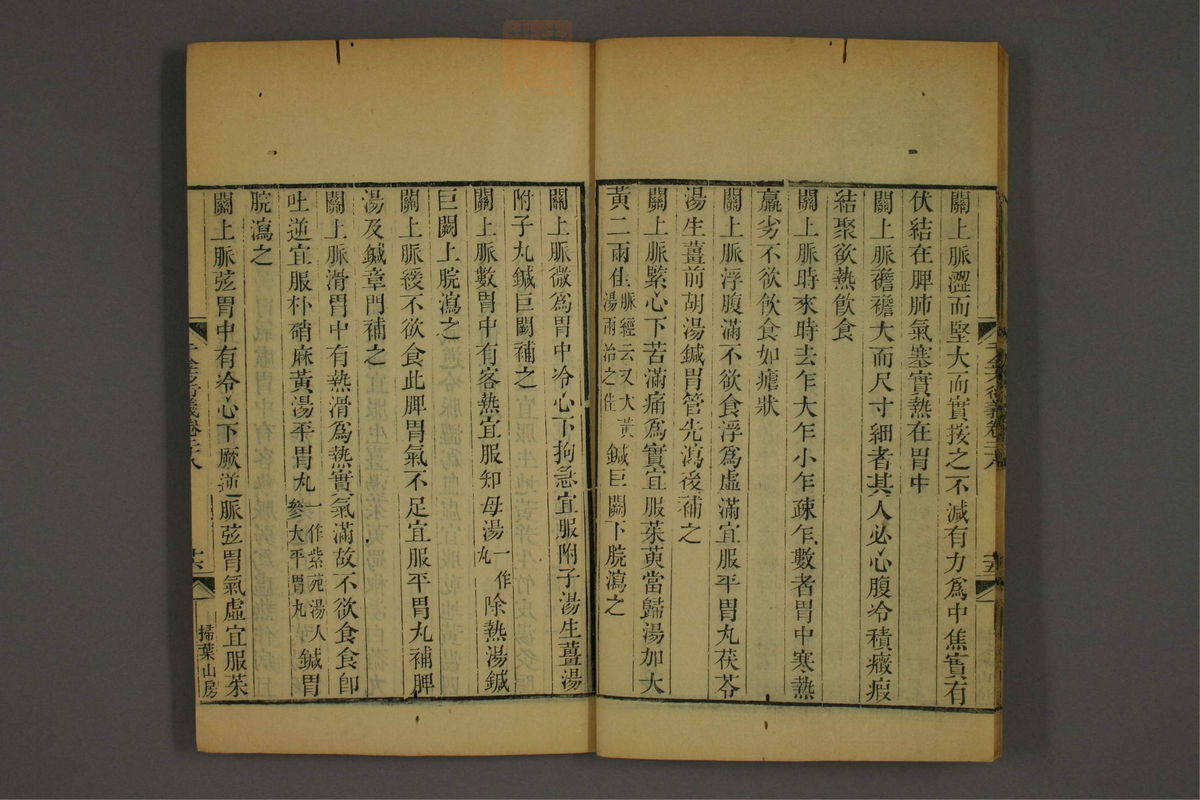 關上脈澀而堅大而實按之不減有力爲中焦實有
伏結在脾肺氣塞實熱在胃中
關上脈襜襜大而尺寸細者其人必心腹冷積癥瘕
結聚欲熱飮食
關上脈時來時去乍大乍小乍疎乍數者胃中寒熱
羸劣不欲飮食如瘧狀
關上脈浮腹滿不欲食浮爲虛滿宜服平胃丸茯苓
湯生薑前胡湯鍼胃管先瀉後補之
關上脈緊心下苦滿痛爲實宜服茱萸當歸湯加大
黃二兩佳脈經云又大黃湯兩治之佳鍼巨闕下脘瀉之
千金方衍義卷二十八
十五
關上脈微爲胃中冷心下拘急宜服附子湯生薑湯
附子丸鍼巨闕補之
關上脈數胃中有客熱宜服知母湯一作丸除熱湯鍼
巨闕上脘瀉之
關上脈緩不欲食此脾胃氣不足宜服平胃丸補脾
湯及鍼章門補之
關上脈滑胃中有熱滑爲熱實氣滿故不欲食食卽
吐逆宜服朴硝麻黃湯平胃丸一作紫苑湯人參大平胃丸鍼胃
脘瀉之
關上脈弦胃中有冷心下厥逆脈弦胃氣虛宜服茱
千金方衍義卷二十八
十六
掃葉山房